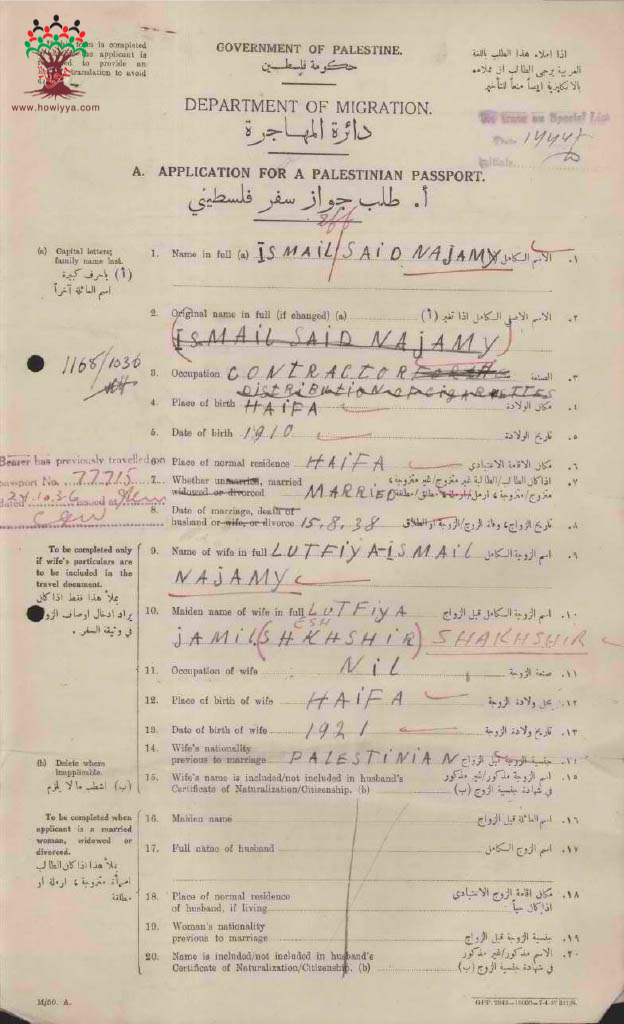 form is completed
the applicant is
to provide an
translation to avoid
www.howiyya.com
GOVERNMENT OF PALESTINE.
حكومة فلسطين
DEPARTMENT OF MIGRATION.
دائرة المهاجرة
اذا املاء هذا الطلب باللغة
العربية يرجى الطالب ان يملاءه
بالانكليزية ايضاً منعاً للتأخير
on Special List
A. APPLICATION FOR A PALESTINIAN PASSPORT.
أ. طلب جواز سفر فلسطيني
(a) Capital letters;
family name last.
(أ) بأحرف كبيرة
اسم العائلة آخراً
1. Name in full (a) ISMAIL SAID NAJAMY الاسم الكامل ١.
2. Original name in full (if changed) (a) الاسم الاصلي الكامل اذا تغير (أ) ٢.
ISMAIL SAID NAJAMY
1168/1036
3. Occupation CONTRACTOR FOR THE الصنعة ٣.
DISTRIBUTION OF CIGARETTES
4. Place of birth HAIFA مكان الولادة ٤.
5. Date of birth 1910 تاريخ الولادة ٥.
Bearer has previously travelled on
passport No. 77715
dated 27.10.36 issued at
6. Place of normal residence HAIFA مكان الاقامة الاعتيادي ٦.
7. Whether unmarried, married
widowed or divorced MARRIED
اذا كان الطالب/الطالبة غير متزوج/غير متزوجة،
متزوج/متزوجة، ارمل/ارملة، مطلق/مطلقة ٧.
8. Date of marriage, death of
husband or wife, or divorce 15.8.38 تاريخ الزواج، وفاة الزوج/الزوجة او الطلاق ٨.
To be completed only
if wife's particulars are
to be included in the
travel document.
يملأ هذا فقط اذا كان
يراد ادخال اوصاف الزوجة
في وثيقة السفر.
9. Name of wife in full LUTFIYA ISMAIL اسم الزوجة الكامل ٩.
NAJAMY
10. Maiden name of wife in full LUTFIYA اسم الزوجة الكامل قبل الزواج ١٠.
JAMIL (SHKHSHIR) SHAKHSHIR
11. Occupation of wife NIL صنعة الزوجة ١١.
12. Place of birth of wife HAIFA محل ولادة الزوجة ١٢.
13. Date of birth of wife 1921 تاريخ ولادة الزوجة ١٣.
14. Wife's nationality
previous to marriage PALESTINIAN جنسية الزوجة قبل الزواج ١٤.
(b) Delete where
inapplicable.
(ب) اشطب ما لا يلزم
15. Wife's name is included/not included in husband's
Certificate of Naturalization/Citizenship. (b)
اسم الزوجة مذكور/غير مذكور ١٥.
في شهادة جنسية الزوج (ب)
To be completed when
applicant is a married
woman, widowed or
divorced.
يملأ هذا اذا كان الطالب
امرأة متزوجة، ارملة او
مطلقة
16. Maiden name اسم العائلة قبل الزواج ١٦.
17. Full name of husband اسم الزوج الكامل ١٧.
18. Place of normal residence
of husband, if living
مكان اقامة الزوج الاعتيادي ١٨.
اذا كان حياً
19. Woman's nationality
previous to marriage جنسية الزوجة قبل الزواج ١٩.
20. Name is included/not included in husband's
Certificate of Naturalization/Citizenship. (b)
الاسم مذكور/غير مذكور ٢٠.
في شهادة جنسية الزوج (ب)
M/50. A.